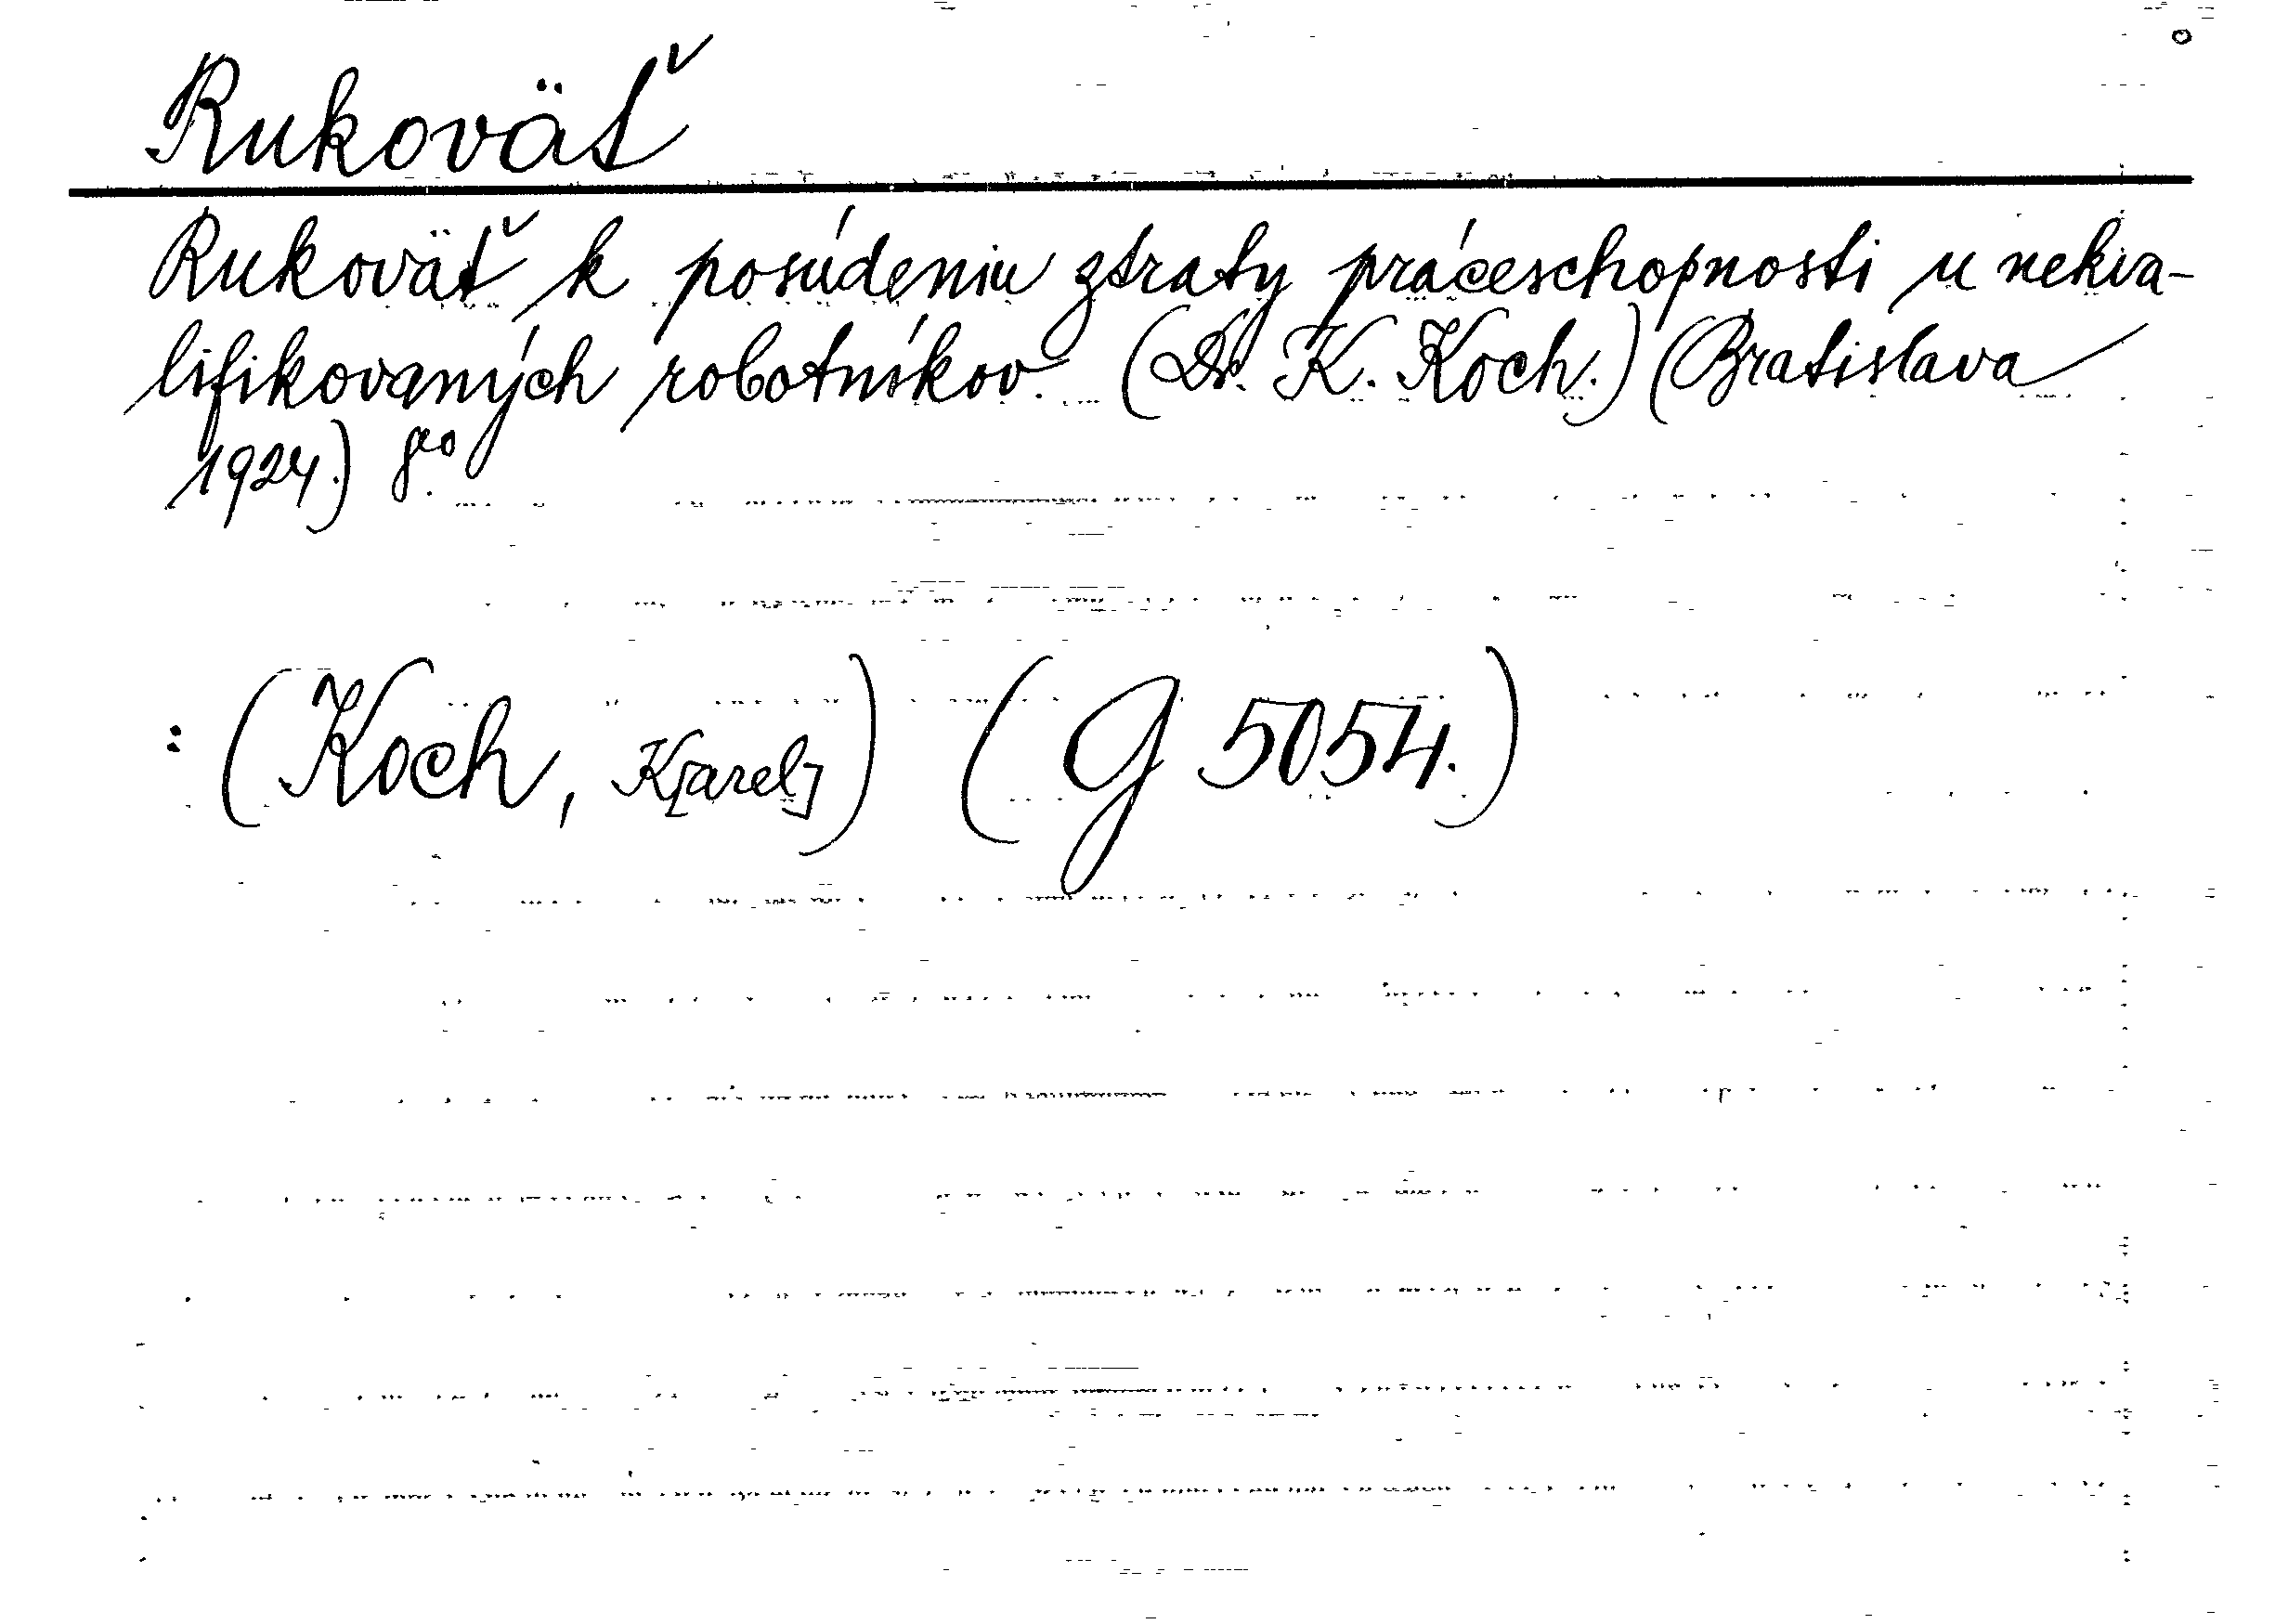 Rukoväť
Rukoväť k posúdeniu ztraty práceschopnosti u nekva-
lifikovaných robotníkov. (Dr. K. Koch.) (Bratislava
1924.) 8°.
: (Koch, K[arel]) (G 5054.)